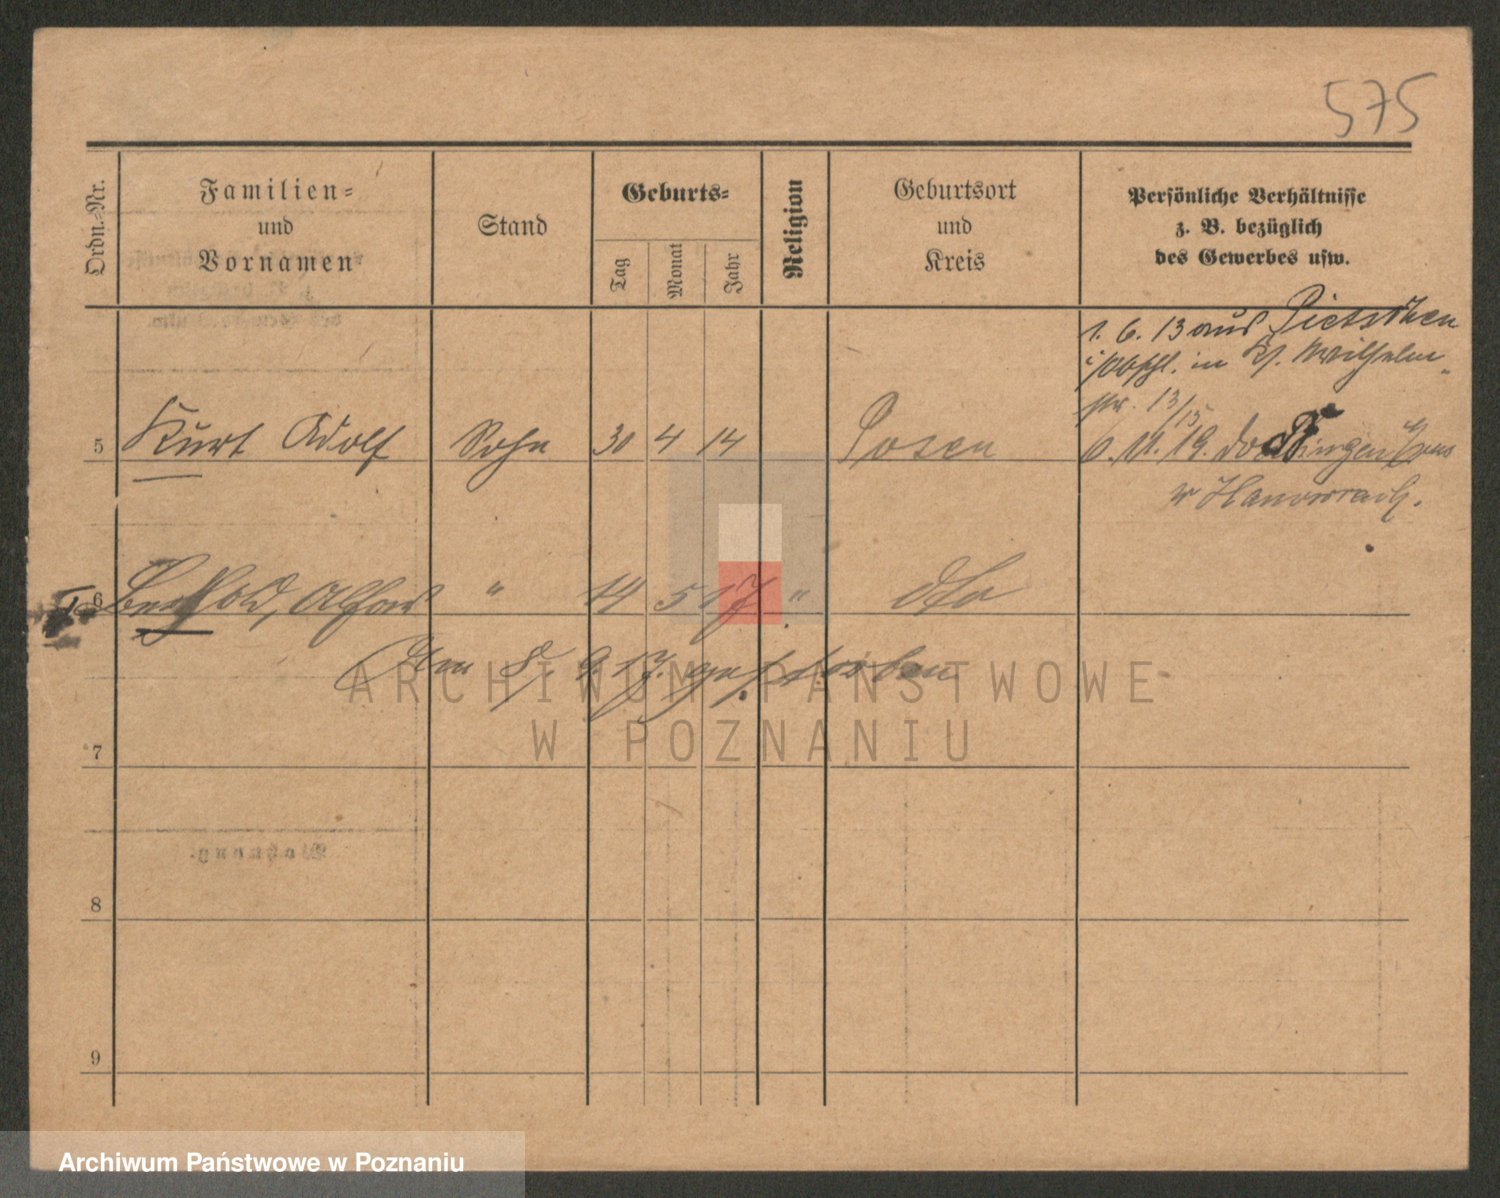 575
Ordn.-Nr.
Familien-
und
Vornamen
Stand
Geburts-
Tag
Monat
Jahr
Religion
Geburtsort
und
Kreis
Persönliche Verhältnisse
z. B. bezüglich
des Gewerbes usw.
1. 6. 13 aus Pietschen
in Kl. Wilhelm-
str. 13/15
5 Kurt Adolf Sohn 30 4 14 Posen
11. 19.
6 Berthold, Alfons " 14 5 17. " dto
Am 8. 9. 17. gestorben
7
8
9
Wohnung.
ARCHIWUM PAŃSTWOWE
W POZNANIU
Archiwum Państwowe w Poznaniu